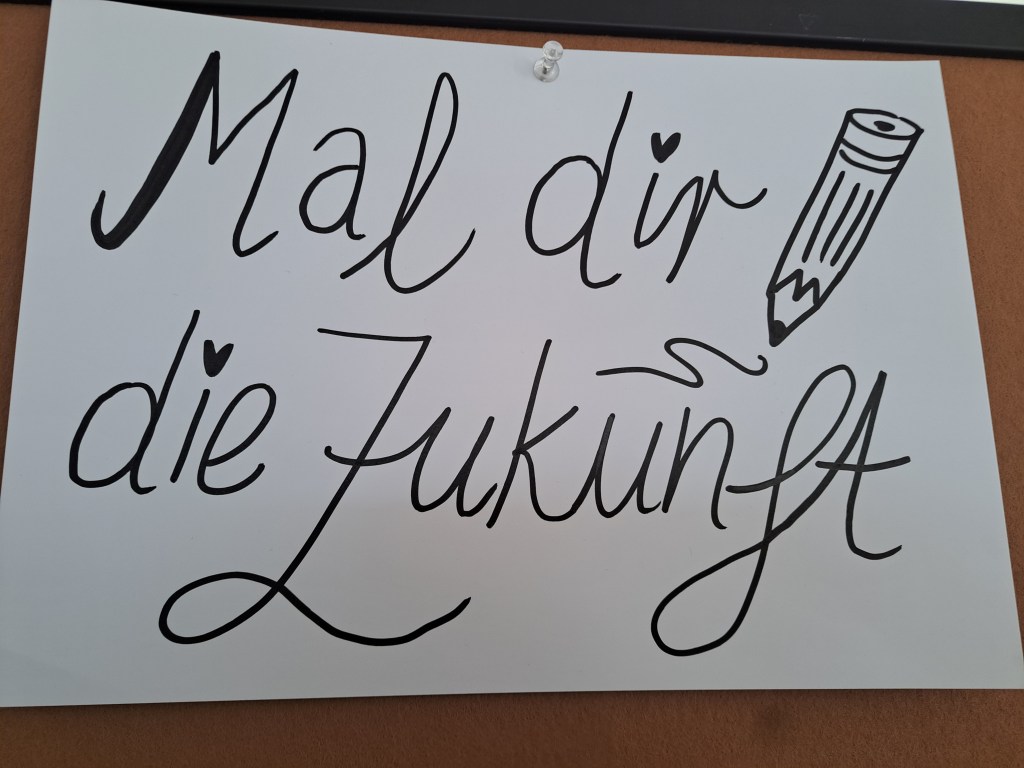 Mal dir
die Zukunft